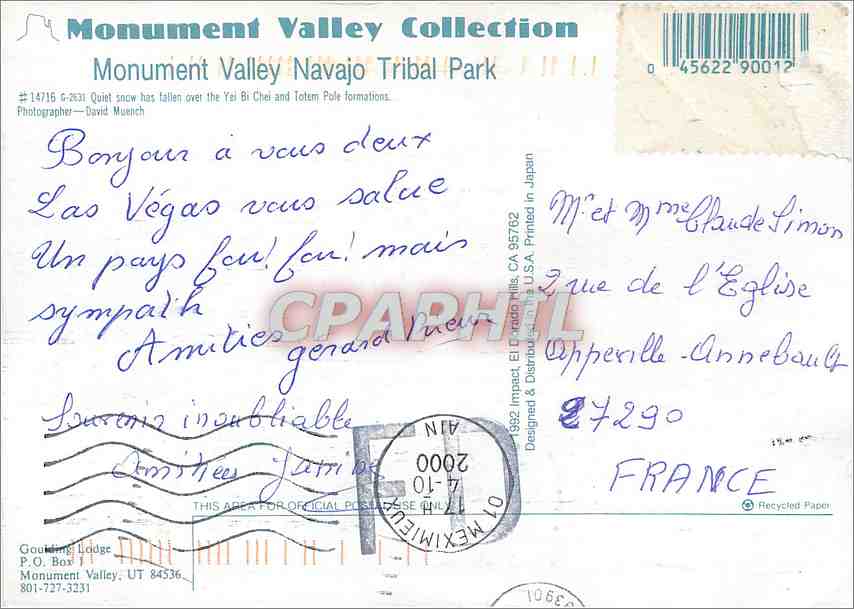 Monument Valley Collection
Monument Valley Navajo Tribal Park
#14716 G-2631 Quiet snow has fallen over the Yei Bi Chei and Totem Pole formations.
Photographer—David Muench
0 45622 90012
Bonjour à vous deux
Las Végas vous salue
Un pays fou! fou! mais
sympath
Amitiés gérard
Souvenir inoubliable
Amitiés
CPAPHIL
©1992 Impact, El Dorado Hills, CA 95762
Designed & Distributed in the U.S.A. Printed in Japan
Mr et Mme Claude Simon
2 rue de l'Eglise
Appeville-Annebault
27290
FRANCE
01 MEXIMIEUX
17H
4-10
2000
AIN
THIS AREA FOR OFFICIAL POSTAL USE ONLY
Recycled Paper
Goulding Lodge
P.O. Box 1
Monument Valley, UT 84536
801-727-3231
03901